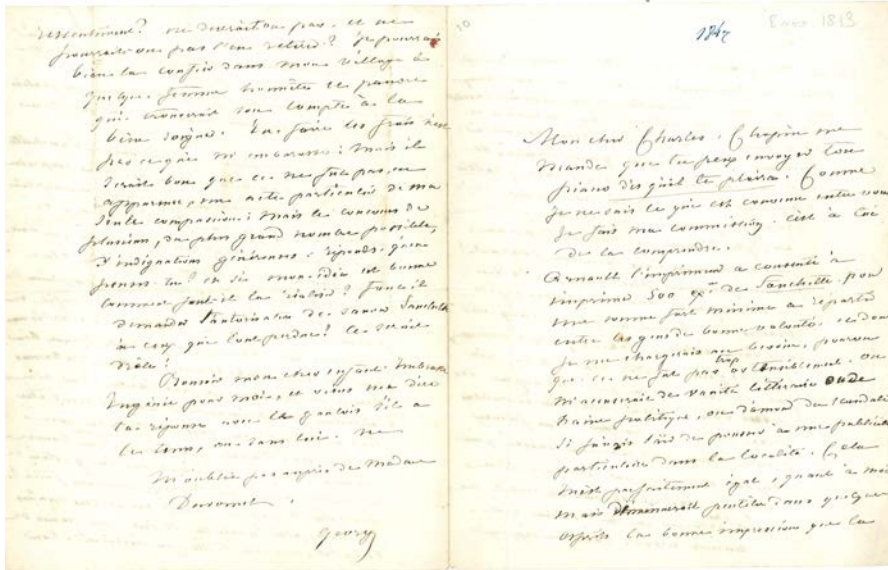 desSentiment? ne devrait-on pas, et ne
pourrait-on pas l'en retirer? Je pourrais
bien la confier dans mon village à
quelque femme honnête et pauvre
qui trouverait son compte à la
bien soigner. En faire les frais n'est
pas ce qui m'embarrasse; mais il
serait bon que ce ne fût pas, en
apparence, un acte particulier de ma
seule compassion; mais le concours de
plusieurs, du plus grand nombre possible,
d'indignations généreuses. réponds, qu'en
penses-tu? et si mon idée est bonne
comment faut-il la réaliser? Faut-il
demander l'autorisation de sauver Fanchette
à ceux qui l'ont perdue? Ce serait
drôle!
Bonsoir mon cher enfant. Embrasse
Eugénie pour moi, et viens me dire
ta réponse avec le gaulois s'il a
le tems, ou sans lui. Ne
m'oublie pas auprès de Madame
Duvernet.
George
10
1842
nov. 1843
Mon cher Charles. Chopin me
mande que tu peux envoyer ton
piano dès qu'il te plaira. Comme
je ne sais ce qui est convenu entre vous
je fais ma commission. c'est à toi
de la comprendre.
Arnault l'imprimeur a consenti à
imprimer 500 ex. de Fanchette, pour
une somme fort minime à répartir
entre les gens de bonne volonté, et dont
je me chargerais au besoin, pourvu
que ce ne fût pas trop ostensiblement. On
m'accuserait de vanité littéraire ou de
haine politique, ou d'amour du scandale
si j'avais l'air de pousser à une publicité
particulière dans la localité. Cela
m'est parfaitement égal, quant à moi
mais diminuerait peut-être dans quelques
esprits la bonne impression que la